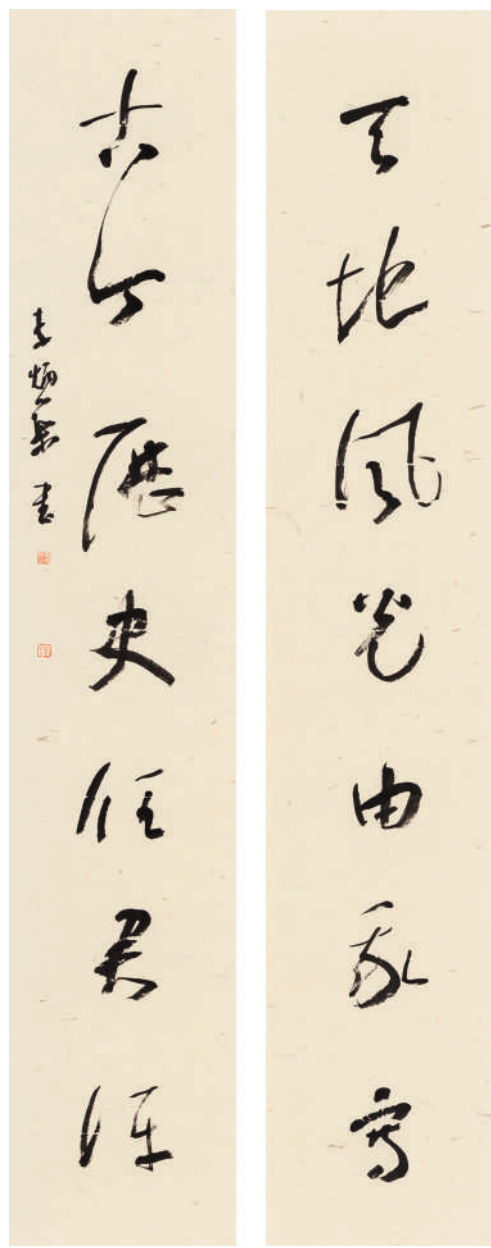 天地風光由我寫
古今歷史任君評
李炳築書